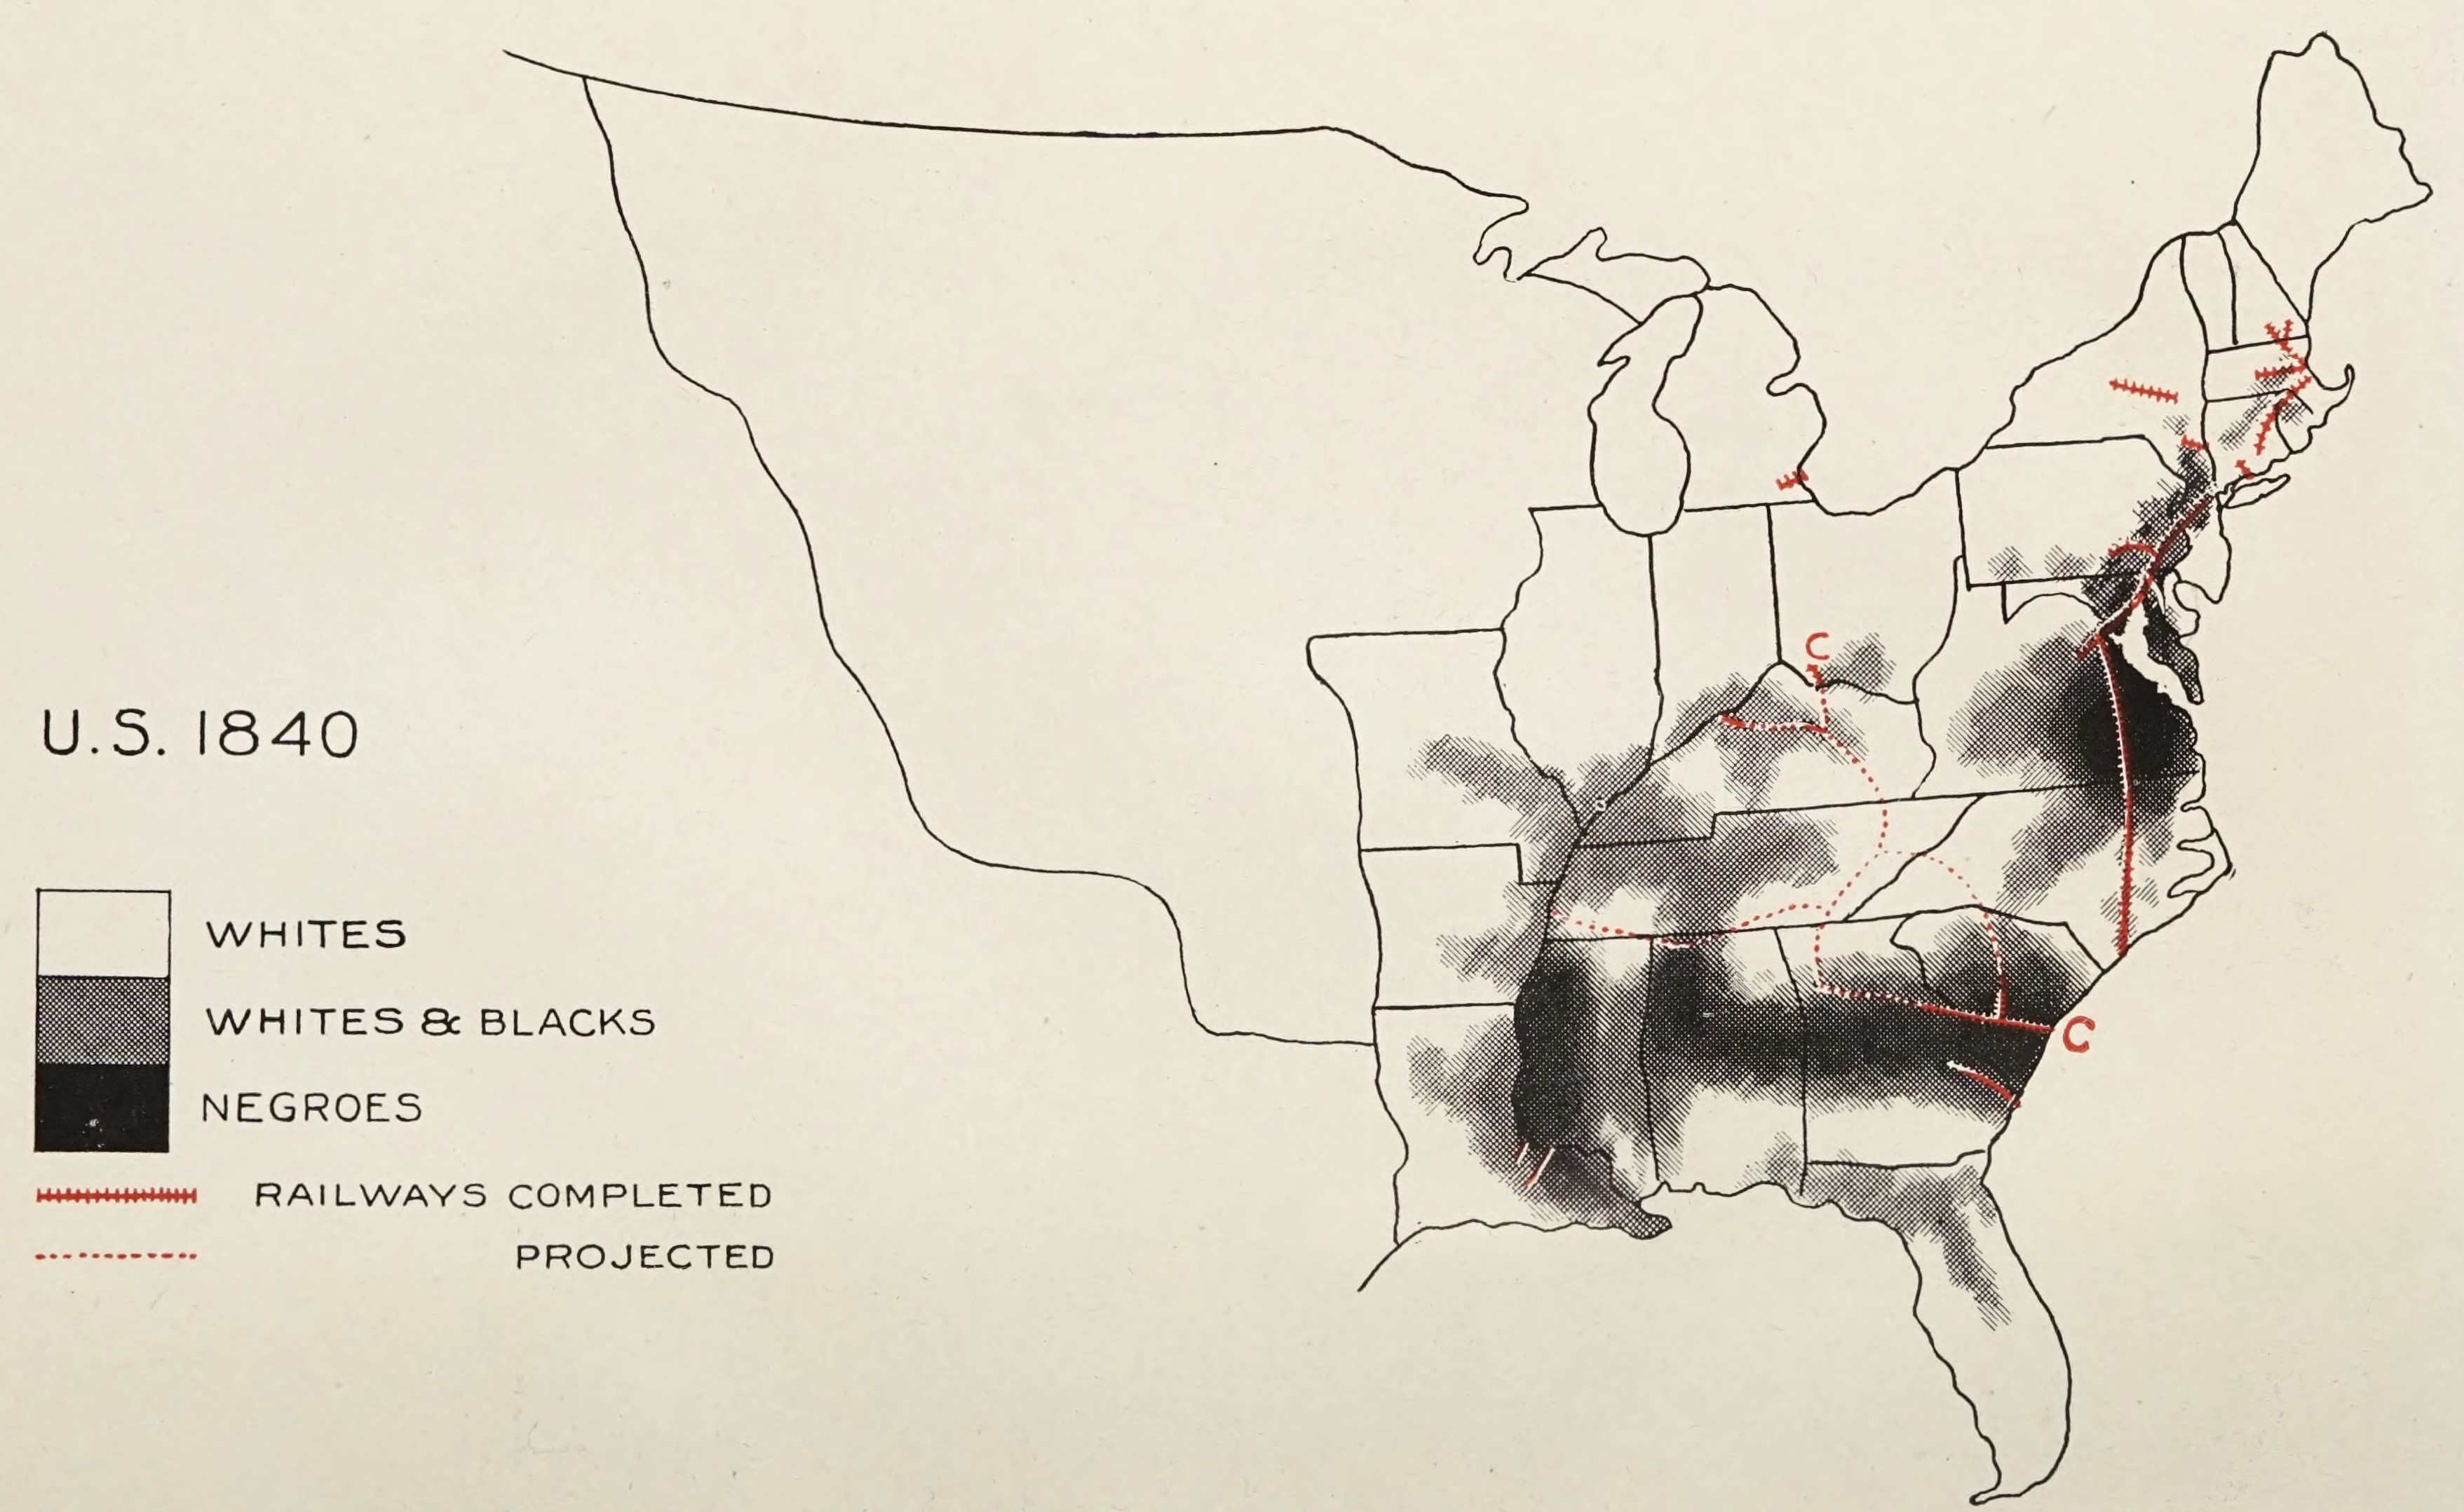 C
U.S. 1840
WHITES
WHITES & BLACKS
NEGROES
C
RAILWAYS COMPLETED
PROJECTED